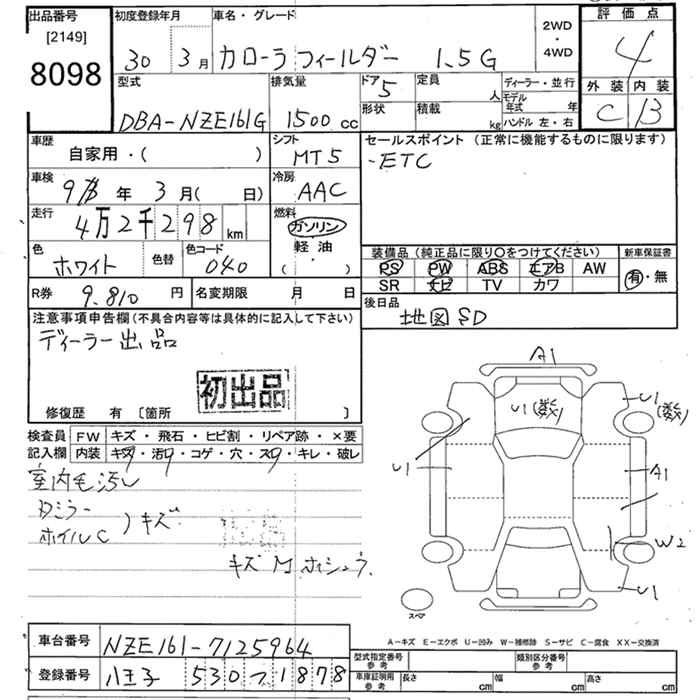 出品番号 初度登録年月 車名・グレード 2WD・4WD 評価点
[2149]
8098 30 3月 カローラフィールダー 1.5G 4
型式 排気量 ドア 5 定員 人 ディーラー・並行 外装 内装
DBA-NZE161G 1500cc 形状 積載 kg モデル年式 年 C B
ハンドル 左・右
車歴 シフト セールスポイント (正常に機能するものに限ります)
自家用・( ) MT5 -ETC
車検 冷房
年 3月( 日) AAC
走行 燃料
4万2千298km ガソリン
軽油
( )
色 色替 色コード 装備品 (純正品に限り○をつけてください) 新車保証書
ホワイト 040 PS PW ABS エアB AW 有・無
SR ナビ TV カワ
R券 9.810円 名変期限 月 日 後日品
地図SD
注意事項申告欄(不具合内容等は具体的に記入して下さい)
ディーラー出品
初出品
修復歴 有 [箇所 ]
A1
U1 (数)
U1 (数)
U1
A1
W2
U1
スペア
検査員記入欄 FW キズ・飛石・ヒビ割・リペア跡・×要
内装 キズ・汚れ・コゲ・穴・スレ・キレ・破レ
室内毛汚レ
ホイルC ) キズ
A-キズ E-エクボ U-凹み W-補修跡 S-サビ C-腐食 XX-交換済
車台番号 NZE161-7125964
登録番号 八王子 530 つ 1878
型式指定番号 参考 類別区分番号 参考
車庫証明用 参考 長さ cm 幅 cm 高さ cm